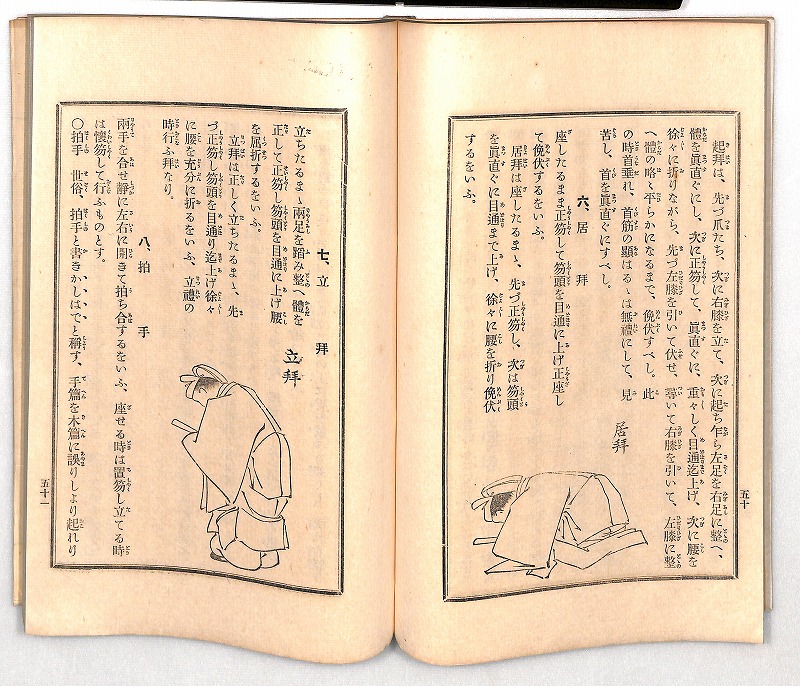 起拜は、先づ爪たち、次に右膝を立て、次に起ち乍ら左足を右足に整へ、
體を眞直ぐにし、次に正笏して、眞直ぐに、重々しく目通迄上げ、次に腰を
徐々に折りながら、先づ左膝を引いて伏せ、尋いで右膝を引いて、左膝に整
へ體の略〻平らかになるまで、俛伏すべし。此
の時首垂れ、首筋の顯はるゝは無禮にして、見
苦し、首を眞直ぐにすべし。
六、居拜
座したるまま正笏して笏頭を目通に上げ正座し
て俛伏するをいふ。
居拜は座したるまゝ、先づ正笏し、次は笏頭
を眞直ぐに目通まで上げ、徐々に腰を折り俛伏
するをいふ。
居拜
五十
七、立拜
立ちたるまゝ兩足を踏み整へ體を
正して正笏し笏頭を目通に上げ腰
を屈折するをいふ。
立拜は正しく立ちたるまゝ、先
づ正笏し笏頭を目通り迄上げ徐々
に腰を充分に折るをいふ、立禮の
時行ふ拜なり。
立拜
八、拍手
兩手を合せ靜に左右に開きて拍ち合するをいふ、座せる時は置笏し立てる時
は懷笏して行ふものとす。
〇拍手 世俗、拍手と書きかしはでと稱す、手篇を木篇に誤りしより起れり
五十一